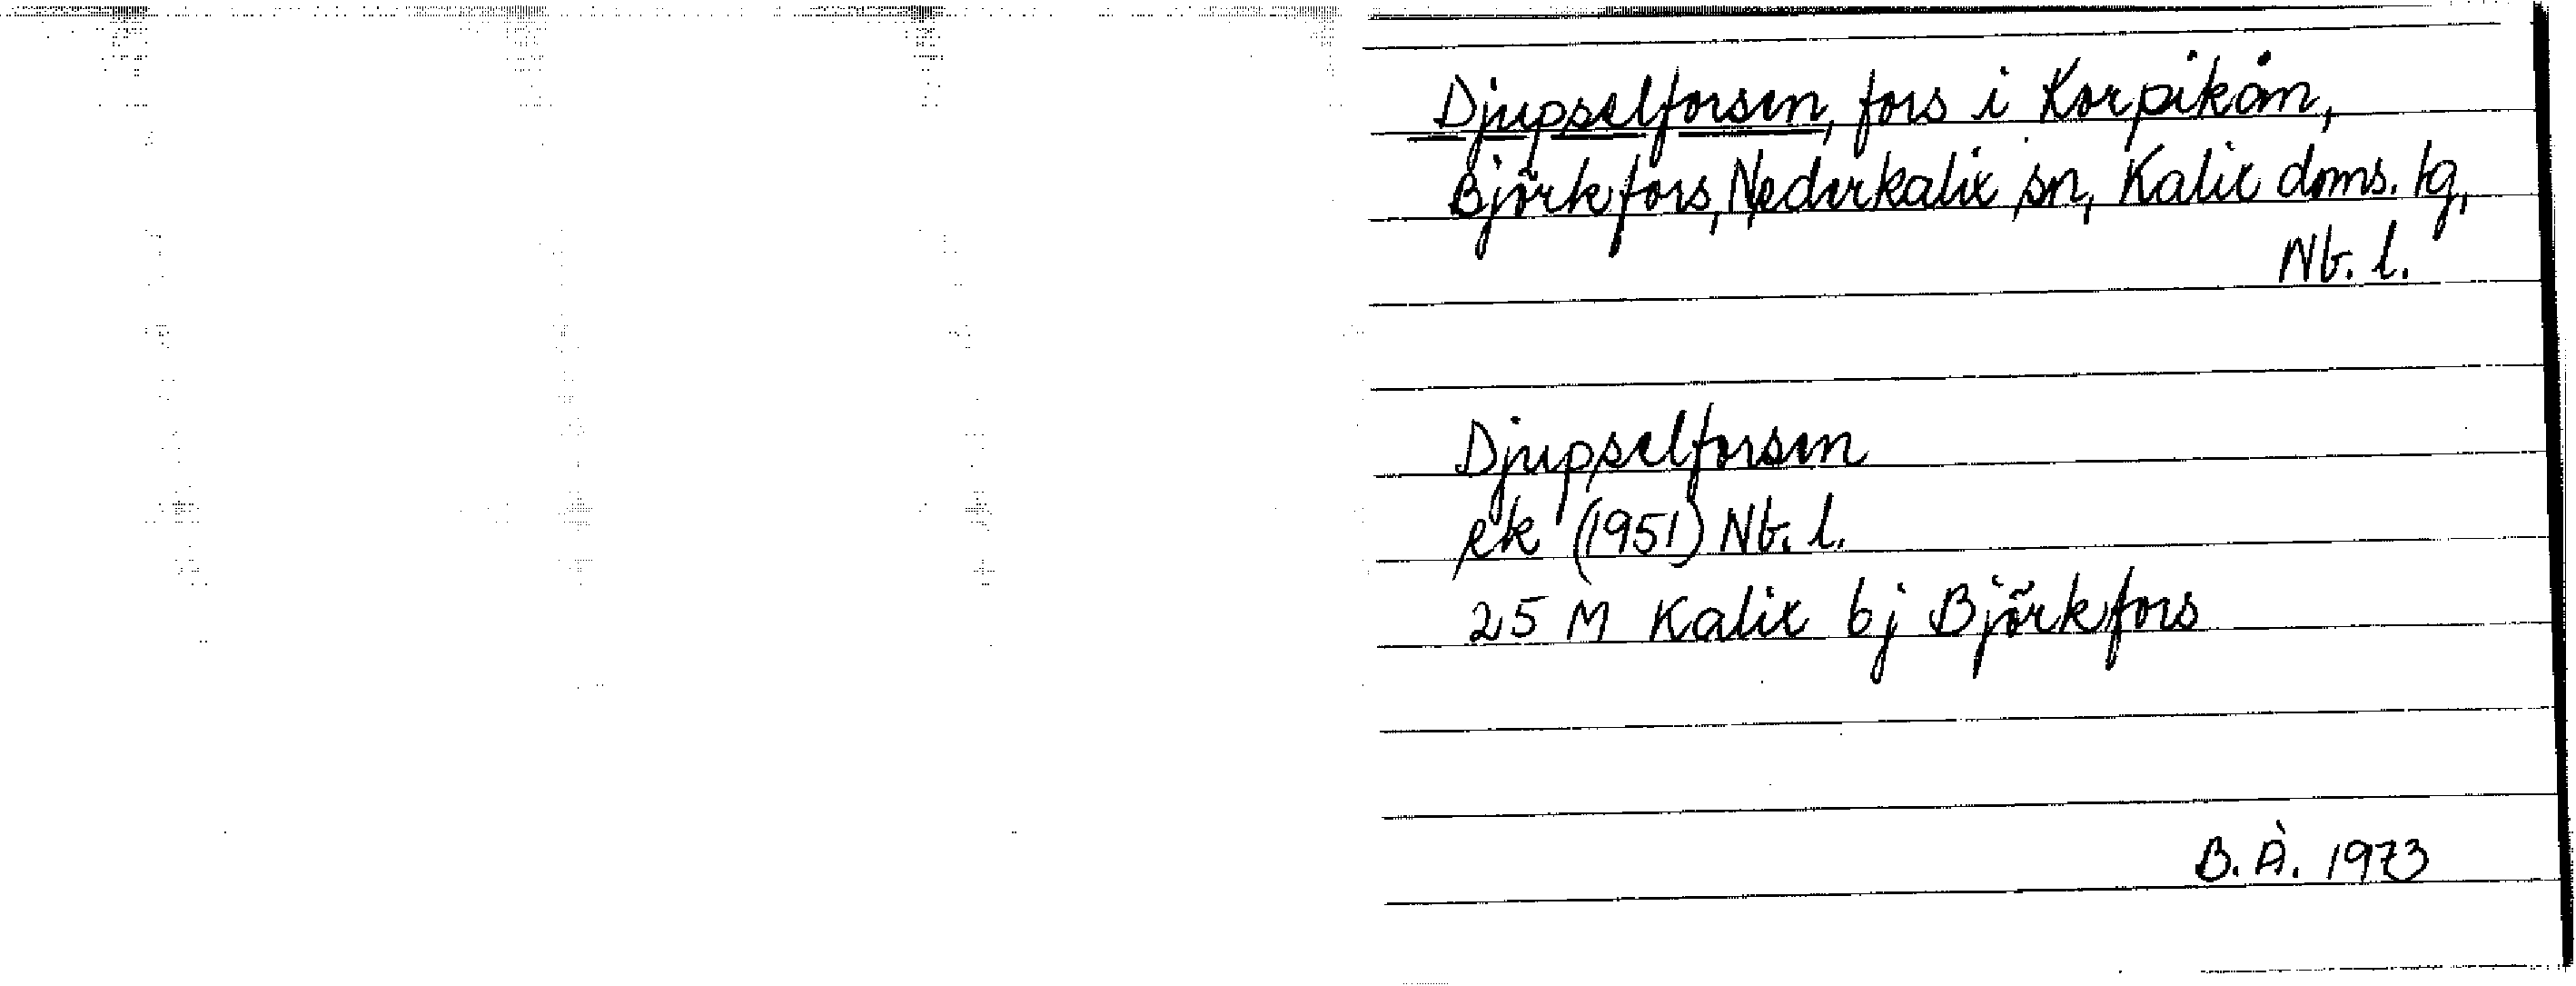 Djupselforsen, fors i Korpikån,
Björkfors, Nederkalix sn, Kalix doms. tg,
Nb. l.
Djupselforsen
ek (1951) Nb. l.
25 M Kalix bj Björkfors
B. Å. 1973